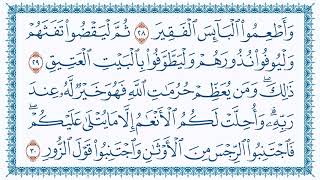 وَأَطْعِمُوا۟ ٱلْبَآئِسَ ٱلْفَقِيرَ ٢٨ ثُمَّ لْيَقْضُوا۟ تَفَثَهُمْ
وَلْيُوفُوا۟ نُذُورَهُمْ وَلْيَطَّوَّفُوا۟ بِٱلْبَيْتِ ٱلْعَتِيقِ
٢٩ ذَٰلِكَ ۖ وَمَن يُعَظِّمْ حُرُمَٰتِ ٱللَّهِ فَهُوَ خَيْرٌ لَّهُۥ عِندَ
رَبِّهِۦ ۗ وَأُحِلَّتْ لَكُمُ ٱلْأَنْعَٰمُ إِلَّا مَا يُتْلَىٰ عَلَيْكُمْ ۖ
فَٱجْتَنِبُوا۟ ٱلرِّجْسَ مِنَ ٱلْأَوْثَٰنِ وَٱجْتَنِبُوا۟ قَوْلَ ٱلزُّورِ ٣٠